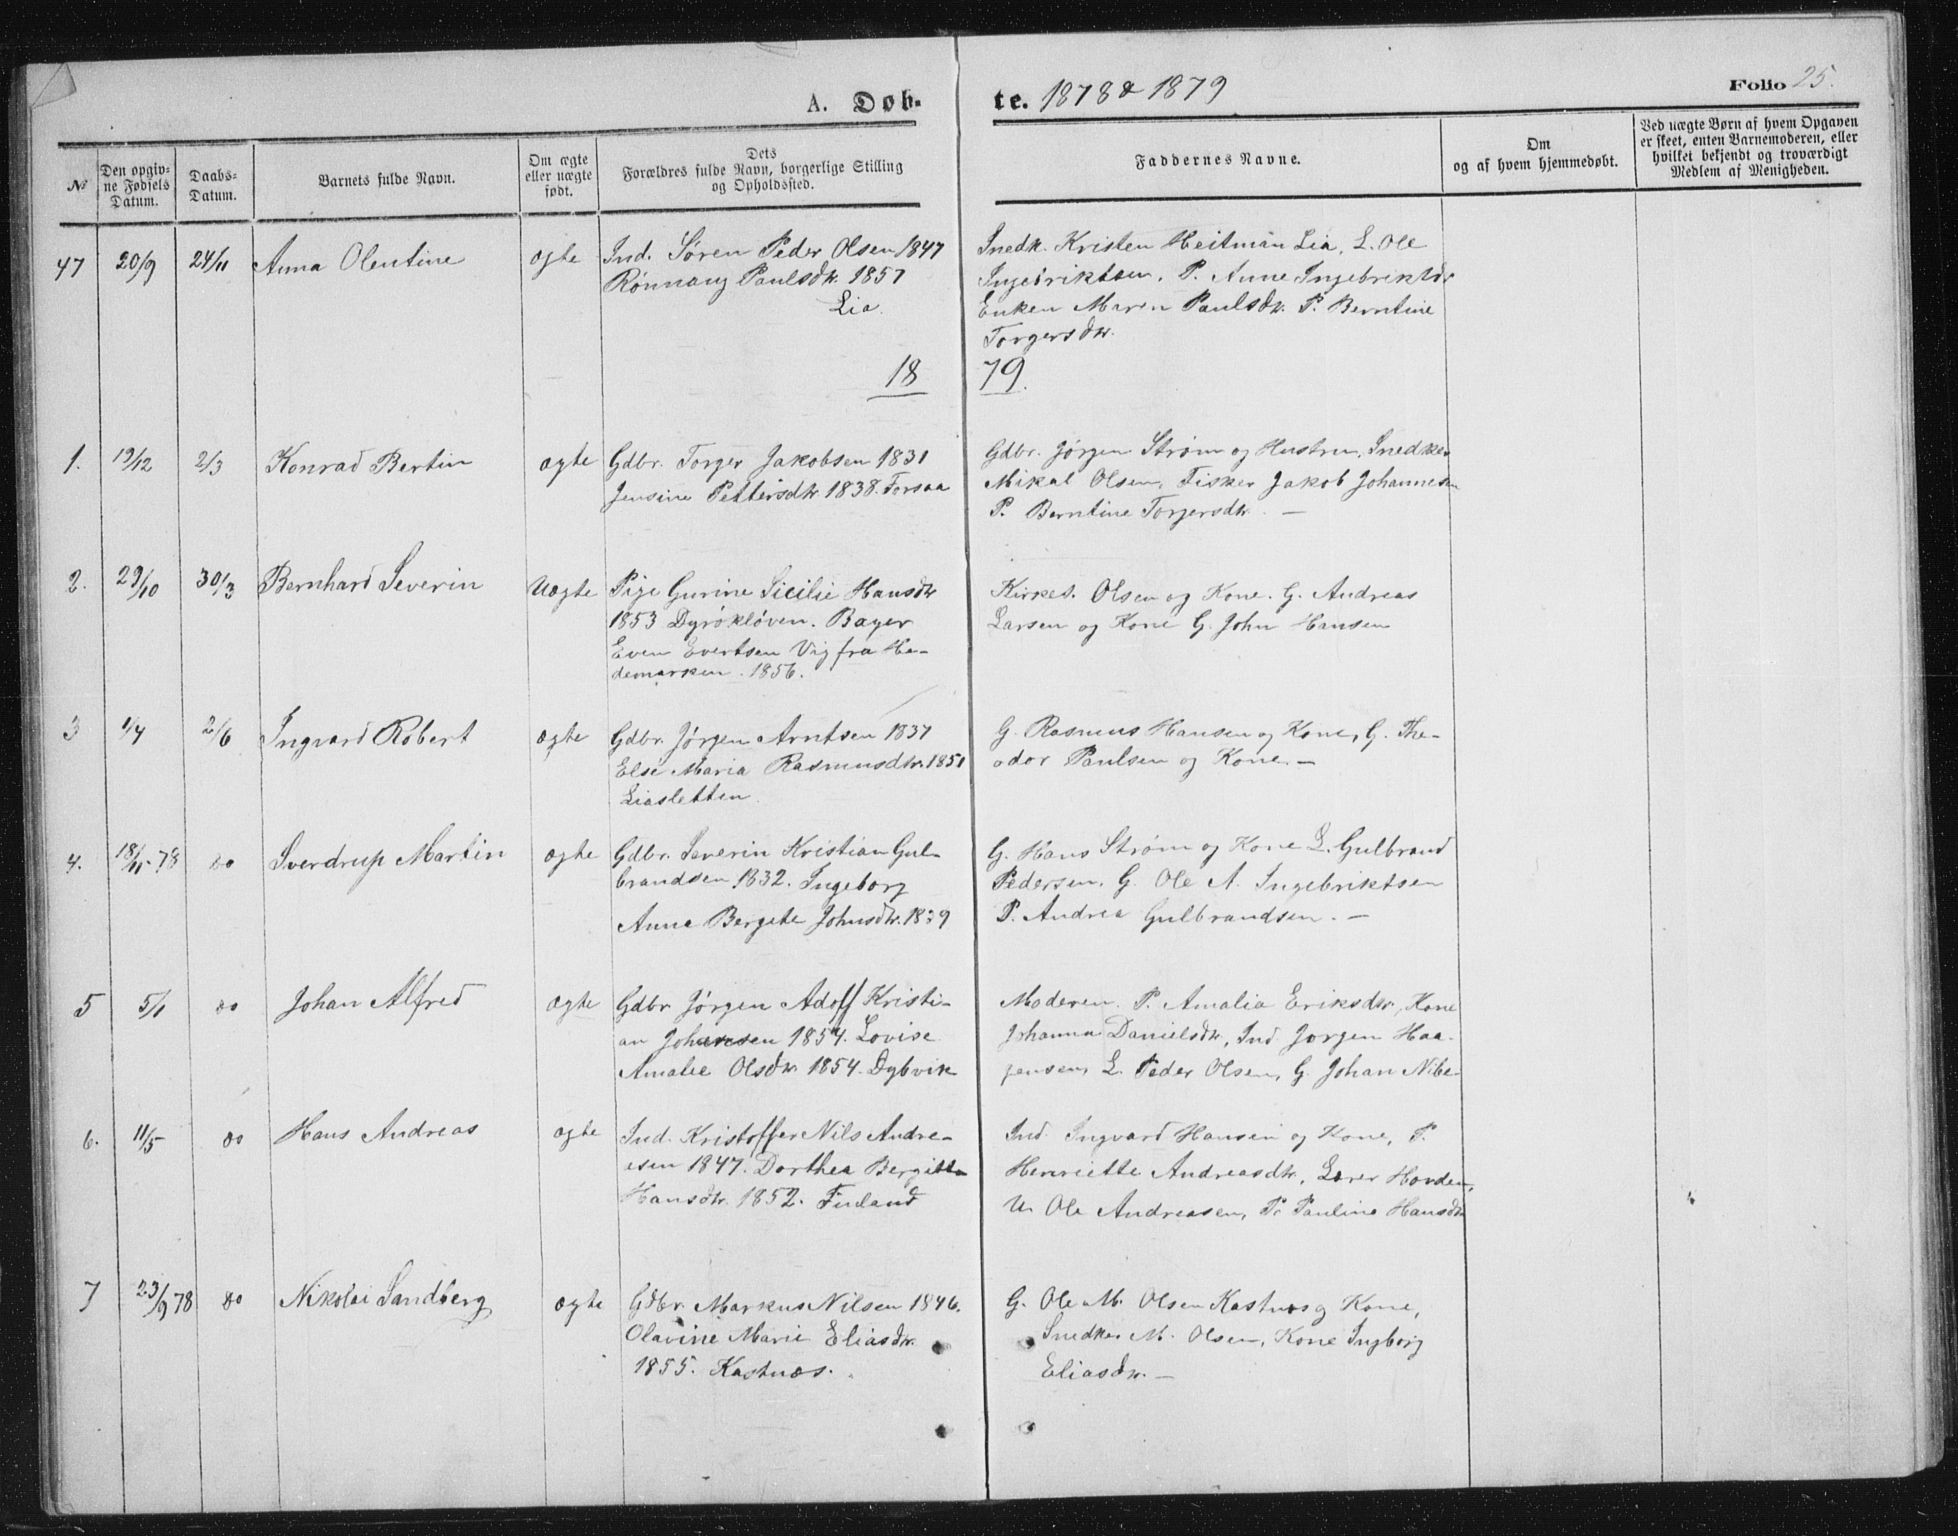 A. Døb-te. 1878 & 1879
Folio 25.
No
Den opgiv-
ne Fødsels
Datum.
Daabs-
Datum.
Barnets fulde Navn.
Om ægte
eller uægte
født.
Dets
Forældres fulde Navn, borgerlige Stilling
og Opholdssted.
Faddernes Navne.
Om
og af hvem hjemmedøbt.
Ved uægte Børn af hvem Opgaven
er skeet, enten Barnemoderen, eller
hvilket bekjendt og troværdigt
Medlem af Menigheden.
47 20/9 24/11 Anna Olentine ægte
Ind. Søren Peder Olsen 1847
Rønnaug Paulsdtr. 1857
Lia.
Snedk. Kristen Heitman Lia, L. Ole
Ingebriktsen, P. Anne Ingebriktdr
Enken Maren Paulsdtr. P. Berntine
Torgersdtr.
18 79.
1. 19/12 2/3 Konrad Bertin ægte
Gdbr. Torger Jakobsen 1831
Jensine Pettersdtr 1838. Forsaa
Gdbr. Jørgen Strøm og Hustru, Snedker
Mikal Olsen, Fisker Jakob Johannesen
P. Berntine Torgersdtr. —
2. 29/10 30/3 Bernhard Severin Uægte
Pige Gurine Sicilie Hansdtr
1853 Dyrøkløven. Bager
Even Evertsen Vig fra He-
demarken. 1856.
Kirkes. Olsen og Kone. G. Andreas
Larsen og Kone G. John Hansen
3 1/4 2/6 Ingvard Robert ægte
Gdbr. Jørgen Arntsen 1837
Else Maria Rasmusdtr. 1851
Liasletten
G. Rasmus Hansen og Kone, G. The-
odor Paulsen og Kone. —
4. 18/11-78 do Sverdrup Martin ægte
Gdbr. Severin Kristian Gul-
brandsen 1832. Ingeborg
Anne Bergete Johnsdtr. 1839
G. Hans Strøm og Kone L. Gulbrand
Pedersen. G. Ole A. Ingebriktsen
P. Andrea Gulbrandsen. —
5 5/1 do Johan Alfred ægte
Gdbr Jørgen Adolf Kristi-
an Johansen 1854. Lovise
Amalie Olsdtr 1854. Dybvik
Moderen. P. Amalia Eriksdtr, Kone
Johanna Danielsdtr, Ind Jørgen Haa-
gensen, L. Peder Olsen, G. Johan Nibe-
6. 11/5 do Hans Andreas ægte
Ind. Kristoffer Nils Andre-
esen 1847. Dorthea Bergitte
Hansdtr. 1852. Finland
Ind. Ingvard Hansen og Kone, P.
Henriette Andreasdtr, Lærer Hovden,
U. Ole Andreasen, P. Pauline Hansdtr
7 23/9 78 do Nikolai Sandberg ægte
Gdbr. Markus Nilsen 1846.
Olavine Marie Eliasdtr.
1855. Kastnæs.
G. Ole M. Olsen Kastnæs og Kone,
Snedker M. Olsen, Kone Ingborg
Eliasdtr. —